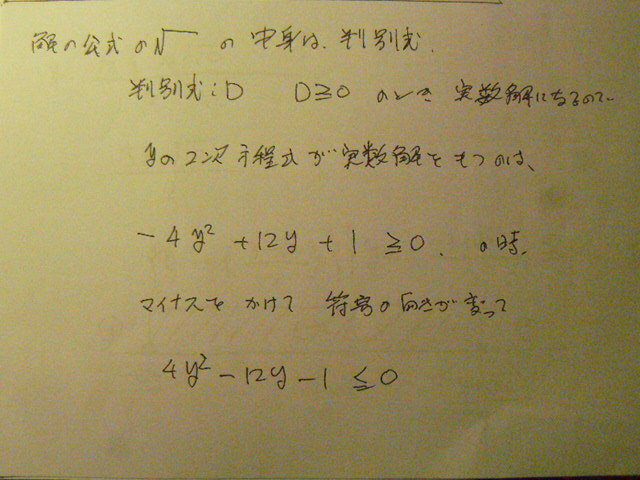 解の公式の√ の中身は、判別式.
判別式:D D≧0 のとき 実数解になるので
yの2次方程式が実数解をもつのは、
-4y²+12y+1 ≧0. の時、
マイナスをかけて 符号の向きが変って
4y²-12y-1 ≦0